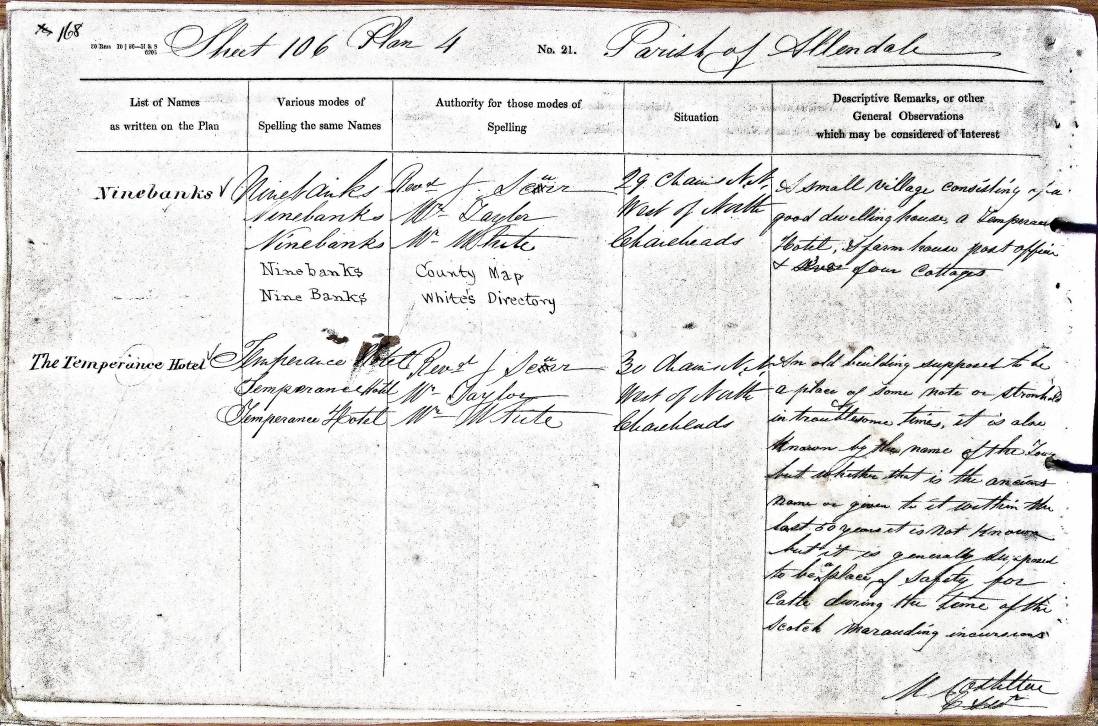 168
Sheet 106 Plan 4 No. 21. Parish of Allendale
List of Names
as written on the Plan
Various modes of
Spelling the same Names
Authority for those modes of
Spelling
Situation
Descriptive Remarks, or other
General Observations
which may be considered of Interest
Ninebanks
Ninebanks
Ninebanks
Ninebanks
Ninebanks
Nine Banks
Revd J.
Mr Taylor
Mr White
County Map
White's Directory
29 Chains N.N.
West of North
Chaireheads
A small village consisting of a
good dwelling house, a Temperance
Hotel, farm house post office
& four Cottages
The Temperance Hotel
Temperance Hotel
Temperance Hotel
Temperance Hotel
Revd J
Mr Taylor
Mr White
30 Chains N.N.
West of North
Chaireheads
An old building supposed to be
a place of some note or stronhold
in troublesome times, it is also
known by the name of the Tower
but whether that is the ancient
name or given to it within the
last 50 years it is not known
but it is generally supposed
to be a place of safety for
Cattle during the time of the
Scotch marauding incursions